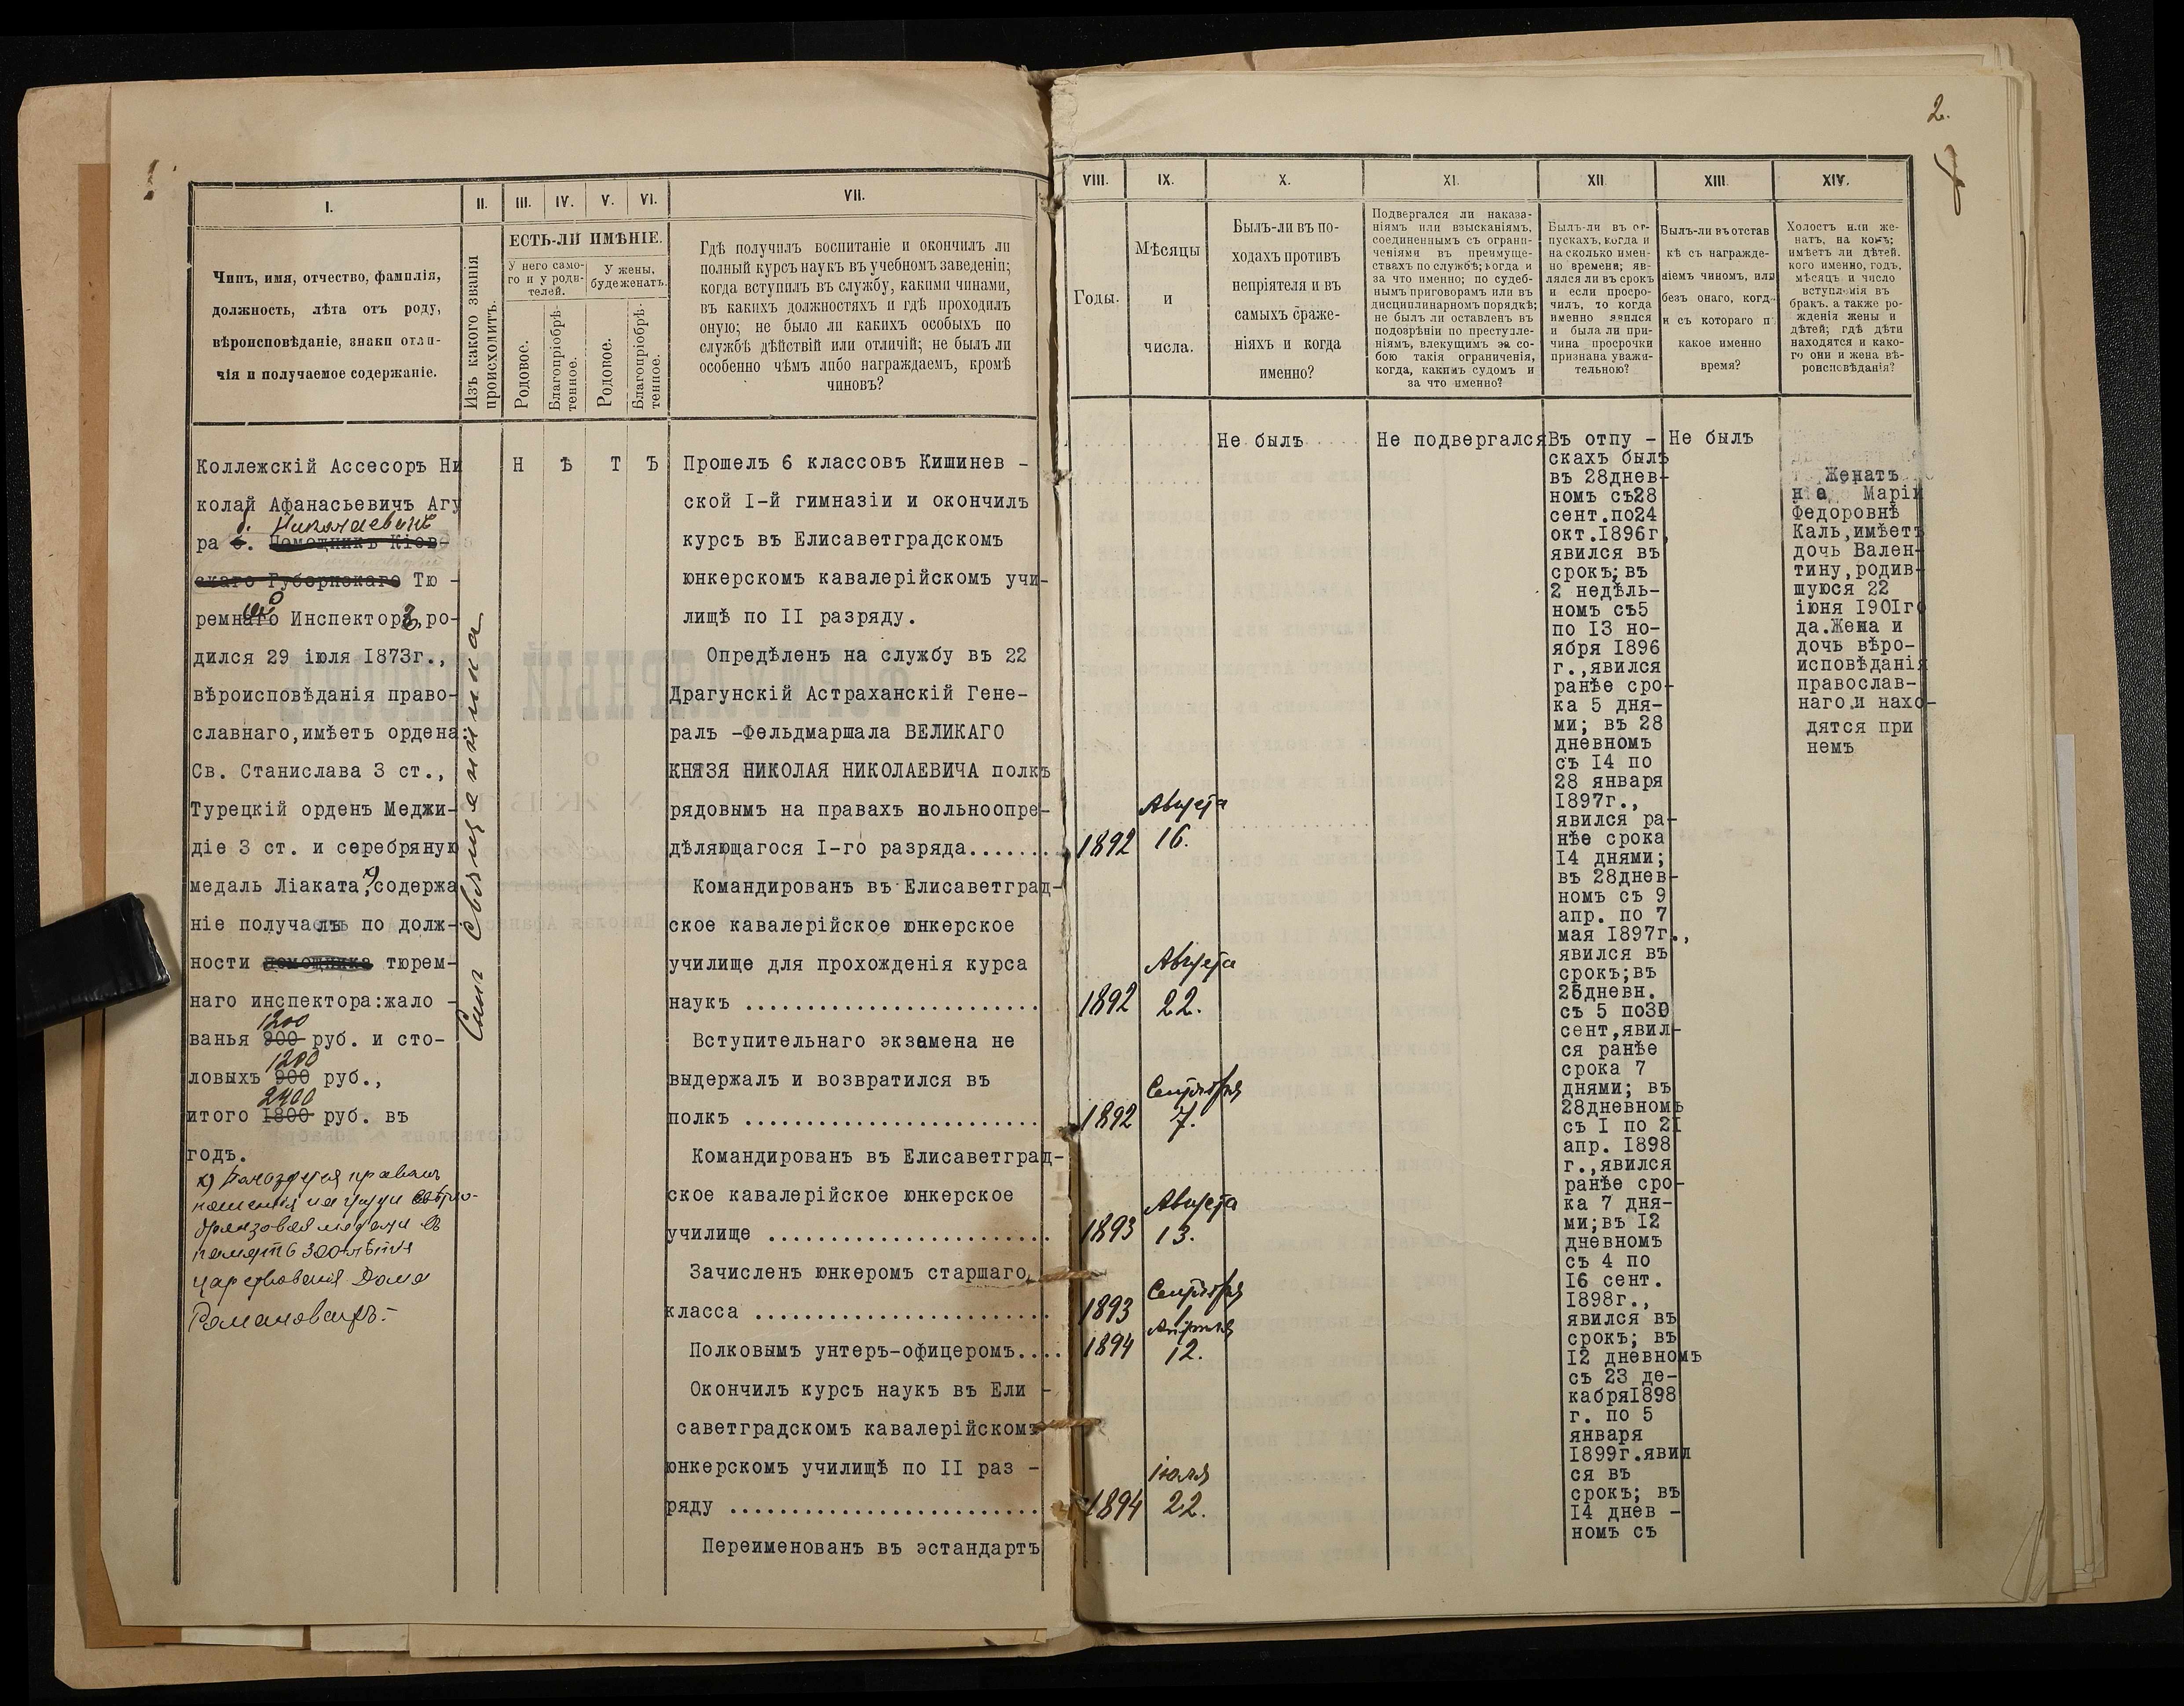 1
2.
I.
II.
III.
IV.
V.
VI.
VII.
Чинъ, имя, отчество, фамилія,
должность, лѣта отъ роду,
вѣроисповѣданіе, знаки отли-
чія и получаемое содержаніе.
Изъ какого званія
происходитъ.
ЕСТЬ-ЛИ ИМѢНІЕ.
У него само-
го и у роди-
телей.
У жены,
буде женатъ.
Родовое.
Благопріобрѣ-
тенное.
Родовое.
Благопріобрѣ-
тенное.
Гдѣ получилъ воспитаніе и окончилъ ли
полный курсъ наукъ въ учебномъ заведеніи;
когда вступилъ въ службу, какими чинами,
въ какихъ должностяхъ и гдѣ проходилъ
оную; не было ли какихъ особыхъ по
службѣ дѣйствій или отличій; не былъ ли
особенно чѣмъ либо награждаемъ, кромѣ
чиновъ?
Коллежскій Ассесоръ Ни
колай Афанасьевичъ Агу
Николаевскій
ра с. Помощникъ Кіев-
скаго Губернскаго Тю -
ремнаго Инспектора, ро-
дился 29 іюля 1873г.,
вѣроисповѣданія право-
славнаго,имѣетъ ордена:
Св. Станислава 3 ст.,
Турецкій орденъ Меджи-
діе 3 ст. и серебряную
медаль Ліаката, содержа
ніе получаетъ по долж-
ности помощника тюрем-
наго инспектора:жало -
1200
ванья 900 руб. и сто-
1200
ловыхъ 900 руб.,
2400
итого 1800 руб. въ
годъ.
нашенія на груди свѣтло-
бронзовая медали въ
память 300-лѣтія
царствованія Дома
Романовыхъ.-
Сынъ священника
Н Ѣ Т Ъ
Прошелъ 6 классовъ Кишинев -
ской I-й гимназіи и окончилъ
курсъ въ Елисаветградскомъ
юнкерскомъ кавалерійскомъ учи-
лищѣ по II разряду.
Опредѣленъ на службу въ 22
Драгунскій Астраханскій Гене-
ралъ -Фельдмаршала ВЕЛИКАГО
КНЯЗЯ НИКОЛАЯ НИКОЛАЕВИЧА полкъ
рядовымъ на правахъ вольноопре-
дѣляющагося I-го разряда........
Командированъ въ Елисаветград-
ское кавалерійское юнкерское
училище для прохожденія курса
наукъ ........................
Вступительнаго экзамена не
выдержалъ и возвратился въ
полкъ ........................
Командированъ въ Елисаветград-
ское кавалерійское юнкерское
училище .......................
Зачисленъ юнкеромъ старшаго
класса ........................
Полковымъ унтеръ-офицеромъ....
Окончилъ курсъ наукъ въ Ели -
саветградскомъ кавалерійскомъ
юнкерскомъ училищѣ по II раз -
ряду ..........................
Переименованъ въ эстандартъ
VIII.
IX.
X.
XI.
XII
XIII.
XIV.
Годы.
Мѣсяцы
и
числа.
Былъ-ли въ по-
ходахъ противъ
непріятеля и въ
самыхъ сраже-
ніяхъ и когда
именно?
Подвергался ли наказа-
ніямъ или взысканіямъ,
соединеннымъ съ ограни-
ченіями въ преимуще-
ствахъ по службѣ; когда и
за что именно; по судеб-
нымъ приговорамъ или въ
дисциплинарномъ порядкѣ;
не былъ ли оставленъ въ
подозрѣніи по преступле-
ніямъ, влекущимъ за со-
бою такія ограниченія,
когда, какимъ судомъ и
за что именно?
Былъ-ли въ от-
пускахъ, когда и
на сколько имен-
но времени; яв-
лялся ли въ срокъ
и если просро-
чилъ, то когда
именно явился
и была ли при-
чина просрочки
признана уважи-
тельною?
Былъ-ли въ отстав
кѣ съ награжде-
ніемъ чиномъ, или
безъ онаго, когда
и съ котораго п
какое именно
время?
Холостъ или же-
натъ, на комъ;
имѣетъ ли дѣтей.
кого именно, годъ,
мѣсяцъ и число
вступленія въ
бракъ, а также ро-
жденія жены и
дѣтей; гдѣ дѣти
находятся и како-
го они и жена вѣ-
роисповѣданія?
1892
Августа
16.
1892
Августа
22.
1892
Сентября
7.
1893
Августа
13.
1893
Сентября
1
1894
Апрѣля
12.
1894
Іюля
22.
Не былъ
Не подвергался
Въ отпу -
скахъ былъ
въ 28днев-
номъ съ28
сент.по24
окт.1896г,
явился въ
срокъ;въ
2 недѣль-
номъ съ5
по 13 но-
ября 1896
г.,явился
ранѣе сро-
ка 5 дня-
ми; въ 28
дневномъ
съ 14 по
28 января
1897г.,
явился ра-
нѣе срока
14 днями;
въ 28днев-
номъ съ 9
апр. по 7
мая 1897г.,
явился въ
срокъ;въ
25дневн.
съ 5 по30
сент,явил-
ся ранѣе
срока 7
днями; въ
28дневномъ
съ I по 21
апр. 1898
г.,явился
ранѣе сро-
ка 7 дня-
ми;въ 12
дневномъ
съ 4 по
16 сент.
1898г.,
явился въ
срокъ; въ
12 дневномъ
съ 23 де-
кабря1898
г. по 5
января
1899г.явил
ся въ
срокъ; въ
14 днев -
номъ съ
Не былъ
Женатъ
на Маріи
Федоровнѣ
Каль,имѣетъ
дочь Вален-
тину,родив-
шуюся 22
іюня 1901го
да.Жена и
дочь вѣро-
исповѣданія
православ-
наго.и нахо-
дятся при
немъ